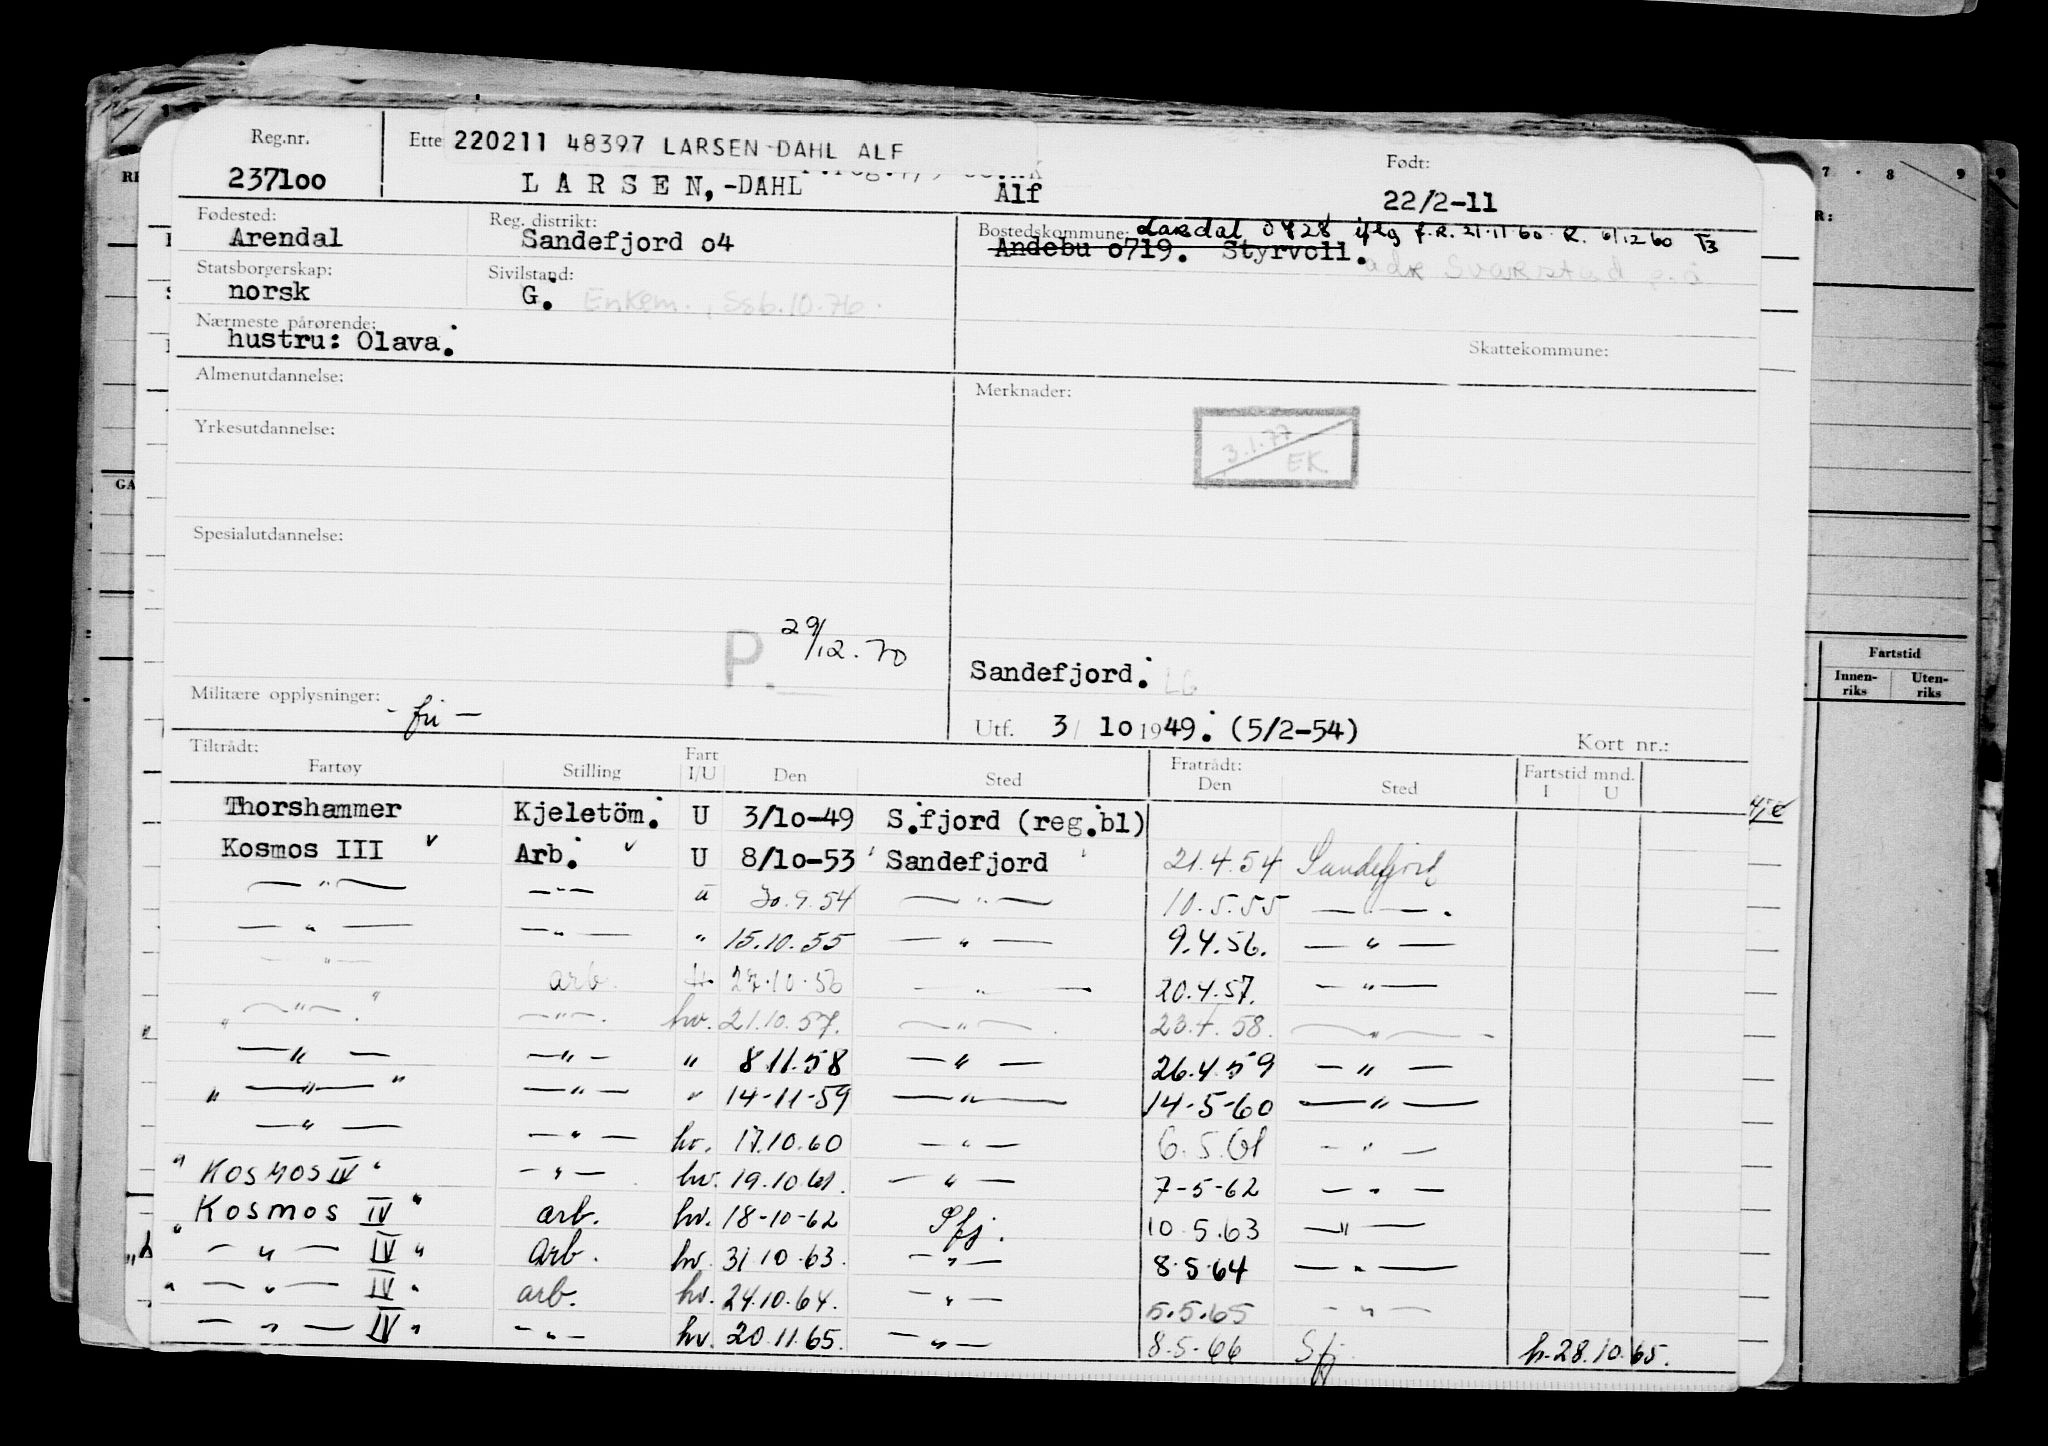 Reg.nr. Ette 220211 48397 LARSEN-DAHL ALF Født:
237100 LARSEN,-DAHL Alf 22/2-11
Fødested: Reg. distrikt: Bostedskommune: Lardal 0728 iflg f.R. 21.11.60 R. 6/12 60
Arendal Sandefjord o4 Andebu o719. Styrvoll. adr Svarstad p.å
Statsborgerskap: Sivilstand:
norsk G. Enkem., Ssb.10.76.
Nærmeste pårørende:
hustru: Olava. Skattekommune:
Almenutdannelse: Merknader:
Yrkesutdannelse: 3.1.77 EK.
Spesialutdannelse:
P. 29/12.70
Sandefjord. LG
Militære opplysninger: - fri - Utf. 3/ 10 1949. (5/2-54) Kort nr.:
Tiltrådt: Fart Fratrådt: Fartstid mnd.
Fartøy Stilling I/U Den Sted Den Sted I U
Thorshammer Kjeletöm. U 3/10-49 S.fjord (reg.bl)
Kosmos III Arb. U 8/10-53 Sandefjord 21.4.54 Sandefjord
— " — — " — " 30.9.54 — " — 10.5.55 — " —
— " — — " — " 15.10.55 — " — 9.4.56. — " —
— " — arb. 27.10.56 — " — 20.4.57. — " —
" — " — " — " — hv. 21.10.57. — " — 23.4.58. — " —
— " — — " — " 8.11.58 — " — 26.4.59 — " —
" — " — " — " — " 14-11-59 — " — 14-5-60 — " —
— " — — " — hv. 17.10.60 — " — 6.5.61 — " —
" KOSMOS IV " — " — hv. 19.10.61. — " — 7-5-62 — " —
" Kosmos IV " arb. hv. 18-10-62 Sfj. 10.5.63 — " —
— " — IV " arb. hv. 31.10.63. — " — 8.5.64 — " —
" — " — IV " arb. hv. 24.10.64. — " — 5.5.65 — " —
— " — IV " — " — hv. 20.11.65. — " — 8.5-66 Sfj. h.28.10.65.
7 . 8 9
GA
Fartstid
Innen-riks Uten-riks